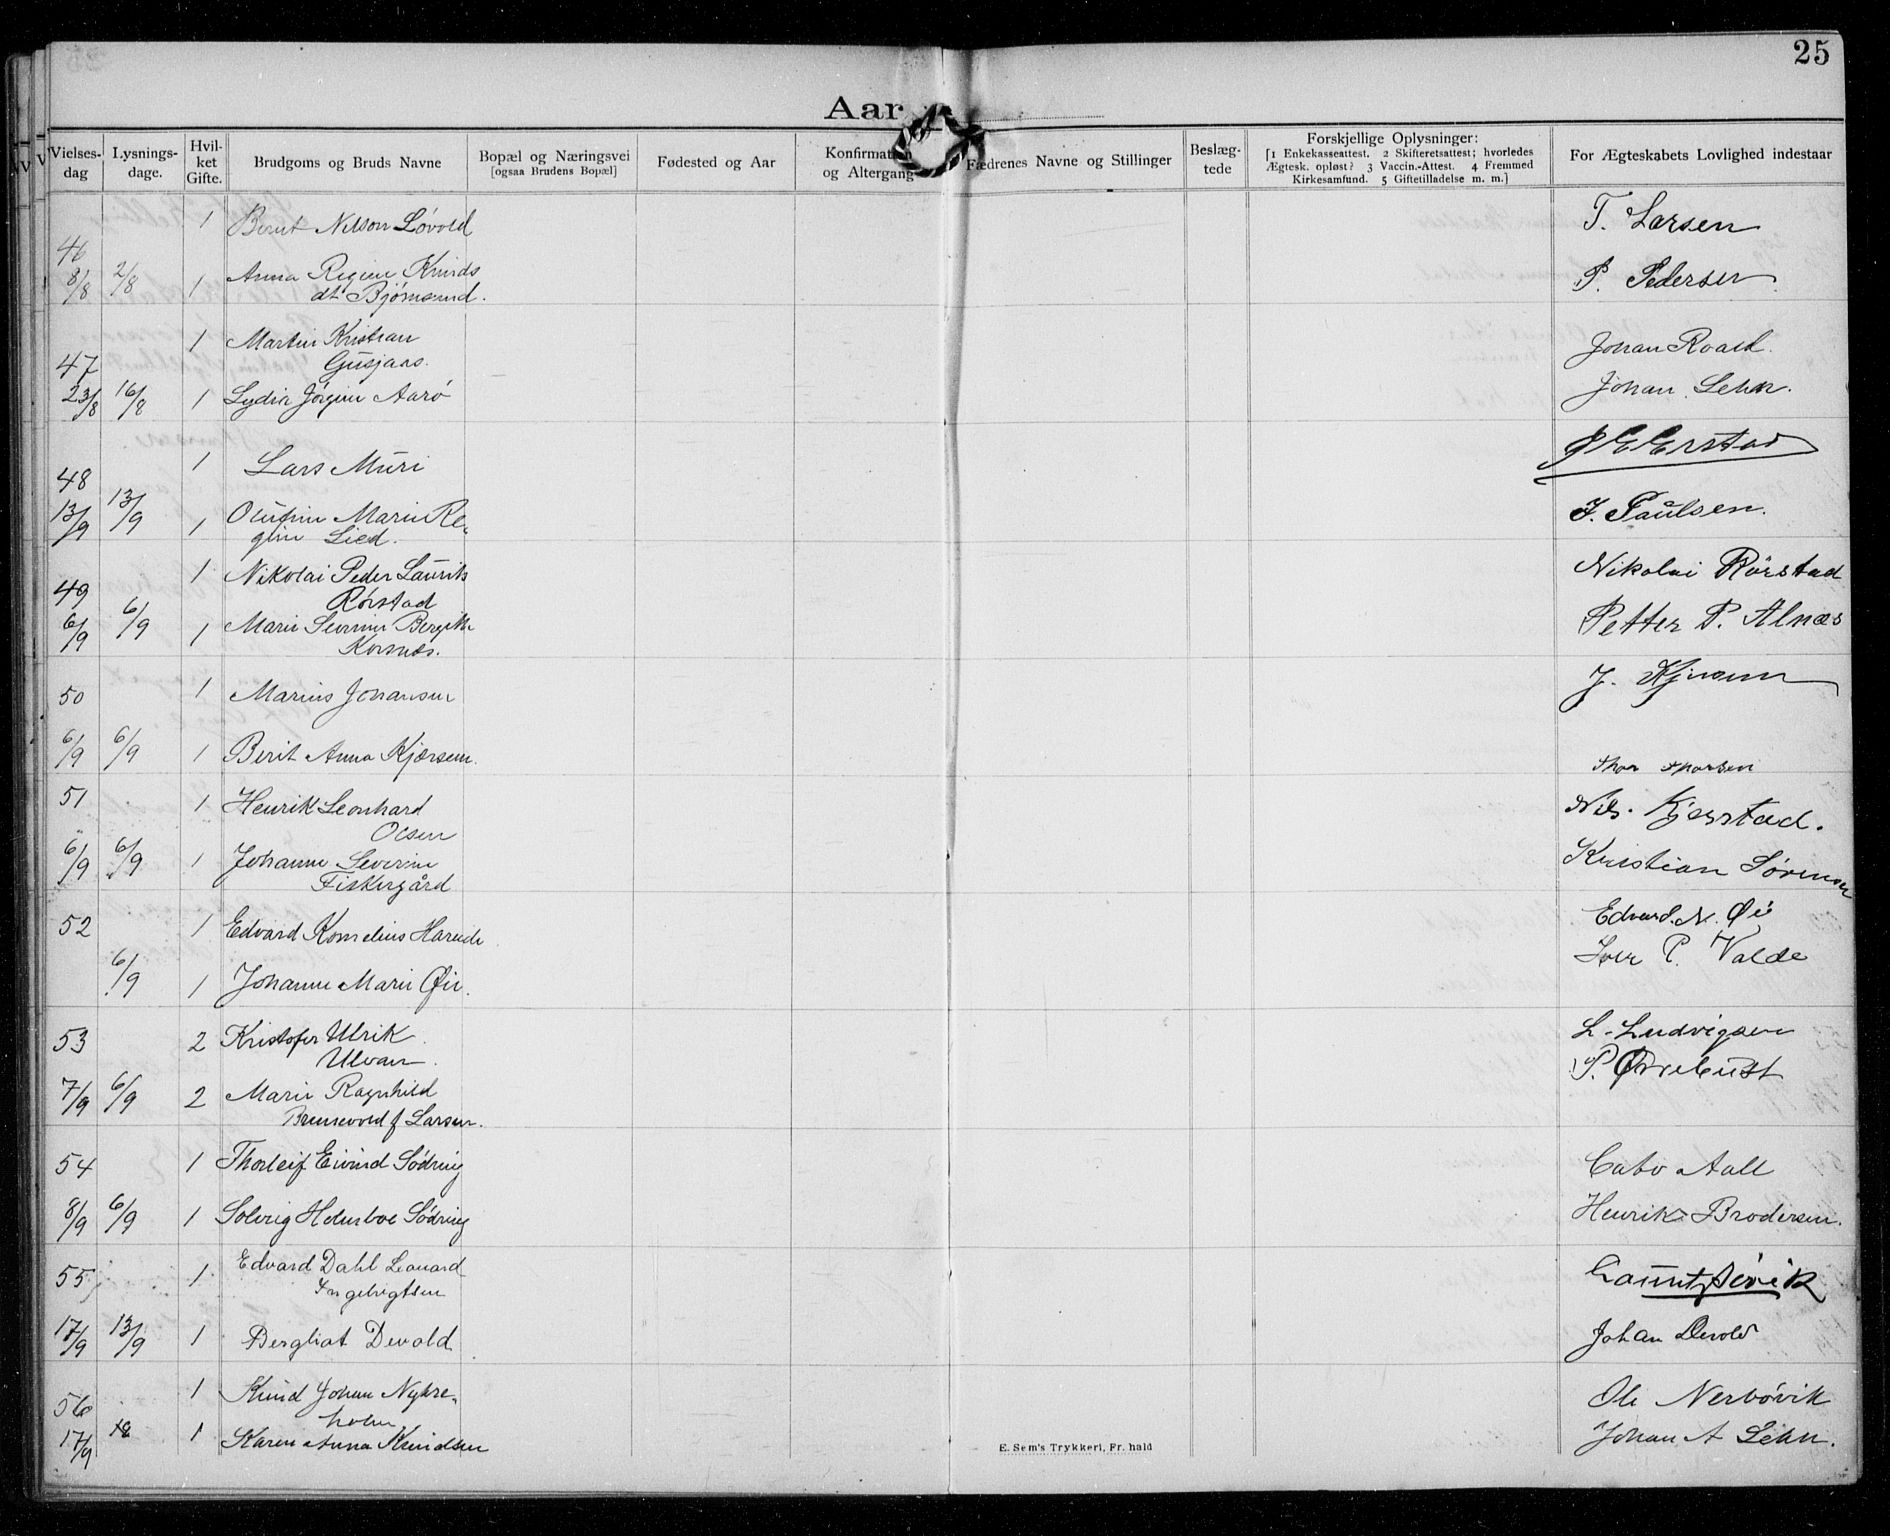 25
Aar
Vielses-dag
Lysnings-dage.
Hvil-ket Gifte.
Brudgoms og Bruds Navne
Bopæl og Næringsvei
[ogsaa Brudens Bopæl]
Fødested og Aar
Konfirmation og Altergang
Fædrenes Navne og Stillinger
Beslæg-tede
Forskjellige Oplysninger:
[1 Enkekasseattest. 2 Skifteretsattest; hvorledes
Ægtesk. opløst? 3 Vaccin.-Attest. 4 Fremmed
Kirkesamfund. 5 Giftetilladelse m. m.]
For Ægteskabets Lovlighed indestaar
1 Berut Nilson Løvold T. Larsen
46
8/8 2/8 1 Anna Regine Knuds P. Pedersen
dt Bjørnsund.
1 Martin Kristian Johan Roald.
47 Gusjaas.
23/8 16/8 1 Lydia Jørgine Aarø Johan Lehn.
1 Lars Muri E Erstad
48
13/9 13/9 1 Olufine Marie Re- J. Paulsen.
gine Lied.
1 Nikolai Peder Laurits Nikolai Rörstad
49 Rørstad
6/9 6/9 1 Marie Severine Bergithe Petter P. Alnæs
Kornæs.
50 1 Marius Johansen J.
6/9 6/9 1 Berit Anna Kjærsem. Thor Thorsen
51 1 Henrik Leonhard Nils. Kjerstad.
Olsen
6/9 6/9 1 Johanne Severine Kristian Sørensen
Fiskergård
52 1 Edvard Kornelius Harnde Edvard. N. Øi
6/9 1 Johanne Marie Øie. Iver P. Valde
53 2 Kristofer Ulrik L. Ludvigsen
Ulvan.
7/9 6/9 2 Marie Ragnhild P. Ørrebust
Brunevold f Larsen.
54 1 Thorleif Eivind Södring Cato Aall
8/9 6/9 1 Solveig Holmboe Södring Henrik Brodersen.
55 1 Edvard Dahl Leonard
Ingebrigtsen
17/9 13/9 1 Bergliot Devold Johan Devold
56 1 Knud Johan Nykre- Ole Nerbövik
holm
17/9 1 Karen Anna Knudsen Johan A Lehn.
E. Sem's Trykkeri, Fr. hald